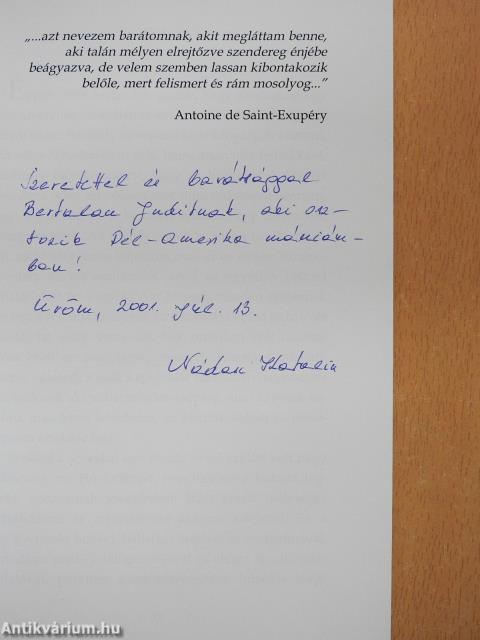 „...azt nevezem barátomnak, akit megláttam benne,
aki talán mélyen elrejtőzve szendereg énjébe
beágyazva, de velem szemben lassan kibontakozik
belőle, mert felismert és rám mosolyog..."
Antoine de Saint-Exupéry
Szeretettel és barátsággal
Bertalan Juditnak, aki osz-
tozik Dél-Amerika mánián-
ban!
Üröm, 2001. júl. 13.
Nádan Katalin
Antikvárium.hu